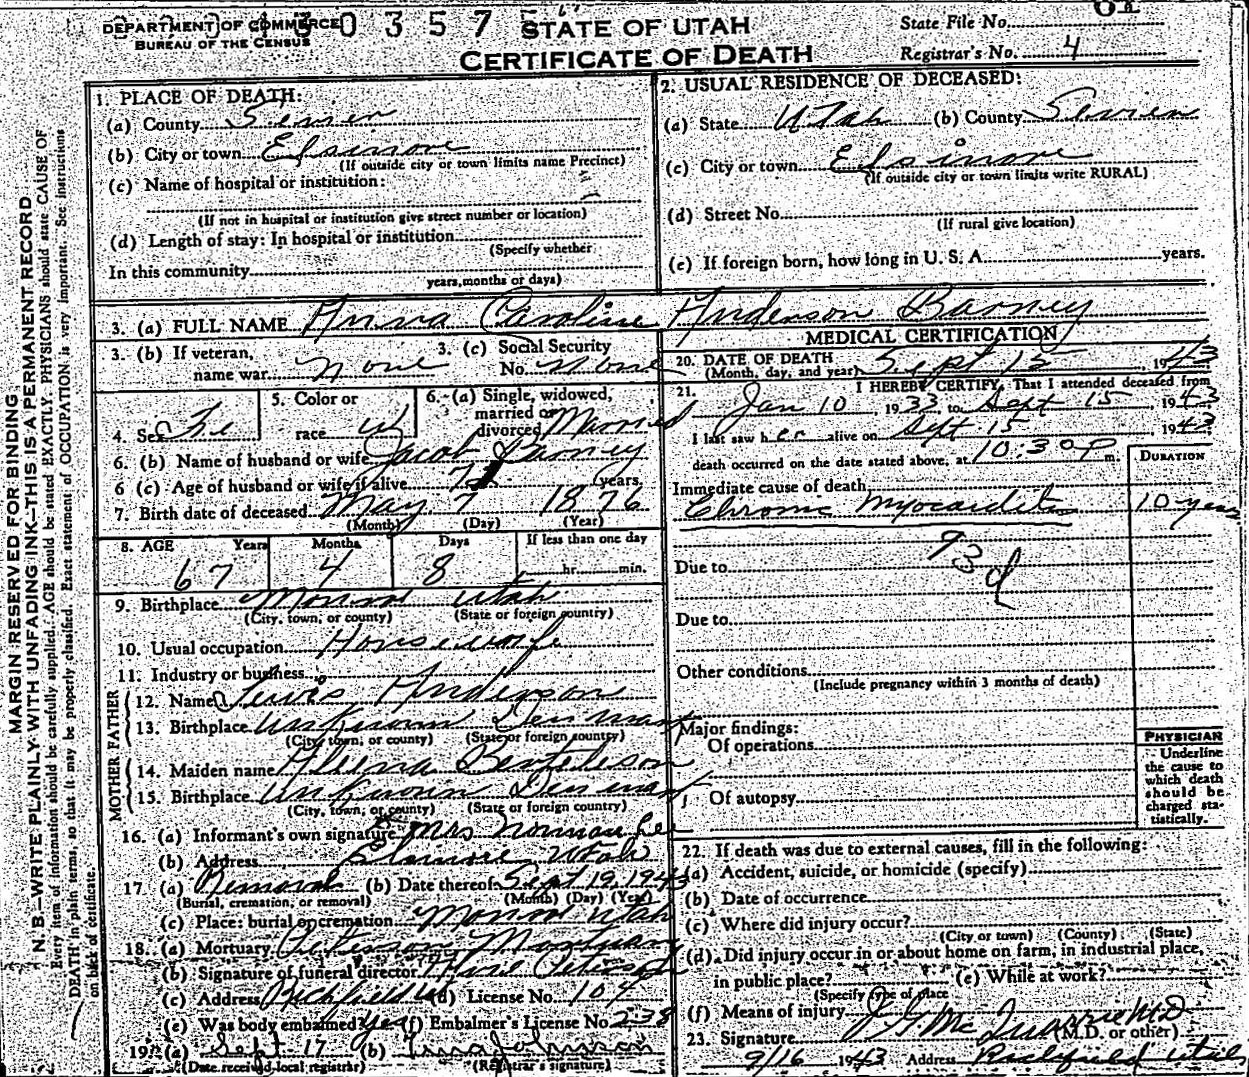 DEPARTMENT OF COMMERCE
BUREAU OF THE CENSUS
3 0 3 5 7
STATE OF UTAH
CERTIFICATE OF DEATH
State File No.
Registrar's No. 4
MARGIN RESERVED FOR BINDING
N. B.—WRITE PLAINLY WITH UNFADING INK—THIS IS A PERMANENT RECORD
Every item of information should be carefully supplied. AGE should be stated EXACTLY. PHYSICIANS should state CAUSE OF
DEATH in plain terms, so that it may be properly classified. Exact statement of OCCUPATION is very important. See instructions
on back of certificate.
1. PLACE OF DEATH:
(a) County Sevier
(b) City or town Elsinore
(If outside city or town limits name Precinct)
(c) Name of hospital or institution:
(If not in hospital or institution give street number or location)
(d) Length of stay: In hospital or institution
(Specify whether
In this community
years, months or days)
2. USUAL RESIDENCE OF DECEASED:
(a) State Utah (b) County Sevier
(c) City or town Elsinore
(If outside city or town limits write RURAL)
(d) Street No.
(If rural give location)
(e) If foreign born, how long in U. S. A. years.
3. (a) FULL NAME Anna Caroline Anderson Barney
3. (b) If veteran, name war none
3. (c) Social Security No. none
4. Sex Fe
5. Color or race W
6. (a) Single, widowed, married or divorced Married
6. (b) Name of husband or wife Jacob Barney
6 (c) Age of husband or wife if alive years.
7. Birth date of deceased May 7 1876
(Month) (Day) (Year)
8. AGE Years Months Days If less than one day
67 4 8 hr. min.
9. Birthplace Monroe Utah
(City, town, or county) (State or foreign country)
10. Usual occupation Housewife
11. Industry or business
FATHER
12. Name Lewis Anderson
13. Birthplace Unknown Denmark
(City, town, or county) (State or foreign country)
MOTHER
14. Maiden name Bertelson
15. Birthplace Unknown Denmark
(City, town, or county) (State or foreign country)
16. (a) Informant's own signature Mrs Norman Lee
(b) Address Elsinore Utah
17. (a) Removal (b) Date thereof Sept 19, 1943
(Burial, cremation, or removal) (Month) (Day) (Year)
(c) Place: burial or cremation Monroe Utah
18. (a) Mortuary Peterson Mortuary
(b) Signature of funeral director Peterson
(c) Address Richfield Ut (d) License No. 104
(e) Was body embalmed? Yes (f) Embalmer's License No. 238
19. (a) Sept 17 (b) Johnson
(Date received local registrar) (Registrar's signature)
MEDICAL CERTIFICATION
20. DATE OF DEATH
(Month, day, and year) Sept 15 1943
21. I HEREBY CERTIFY, That I attended deceased from
Jan 10 1933 to Sept 15 1943
I last saw her alive on Sept 15 1943
death occurred on the date stated above, at 10:30 P m.
DURATION
Immediate cause of death
Chronic myocarditis 10 years
93 d
Due to
Due to
Other conditions
(Include pregnancy within 3 months of death)
Major findings:
Of operations
Of autopsy
PHYSICIAN
Underline
the cause to
which death
should be
charged sta-
tistically.
22. If death was due to external causes, fill in the following:
(a) Accident, suicide, or homicide (specify)
(b) Date of occurrence
(c) Where did injury occur?
(City or town) (County) (State)
(d) Did injury occur in or about home on farm, in industrial place,
in public place? (e) While at work?
(Specify type of place
(f) Means of injury
23. Signature J. G. McQuarrie M.D.
(M.D. or other)
9/16 1943 Address Richfield Utah